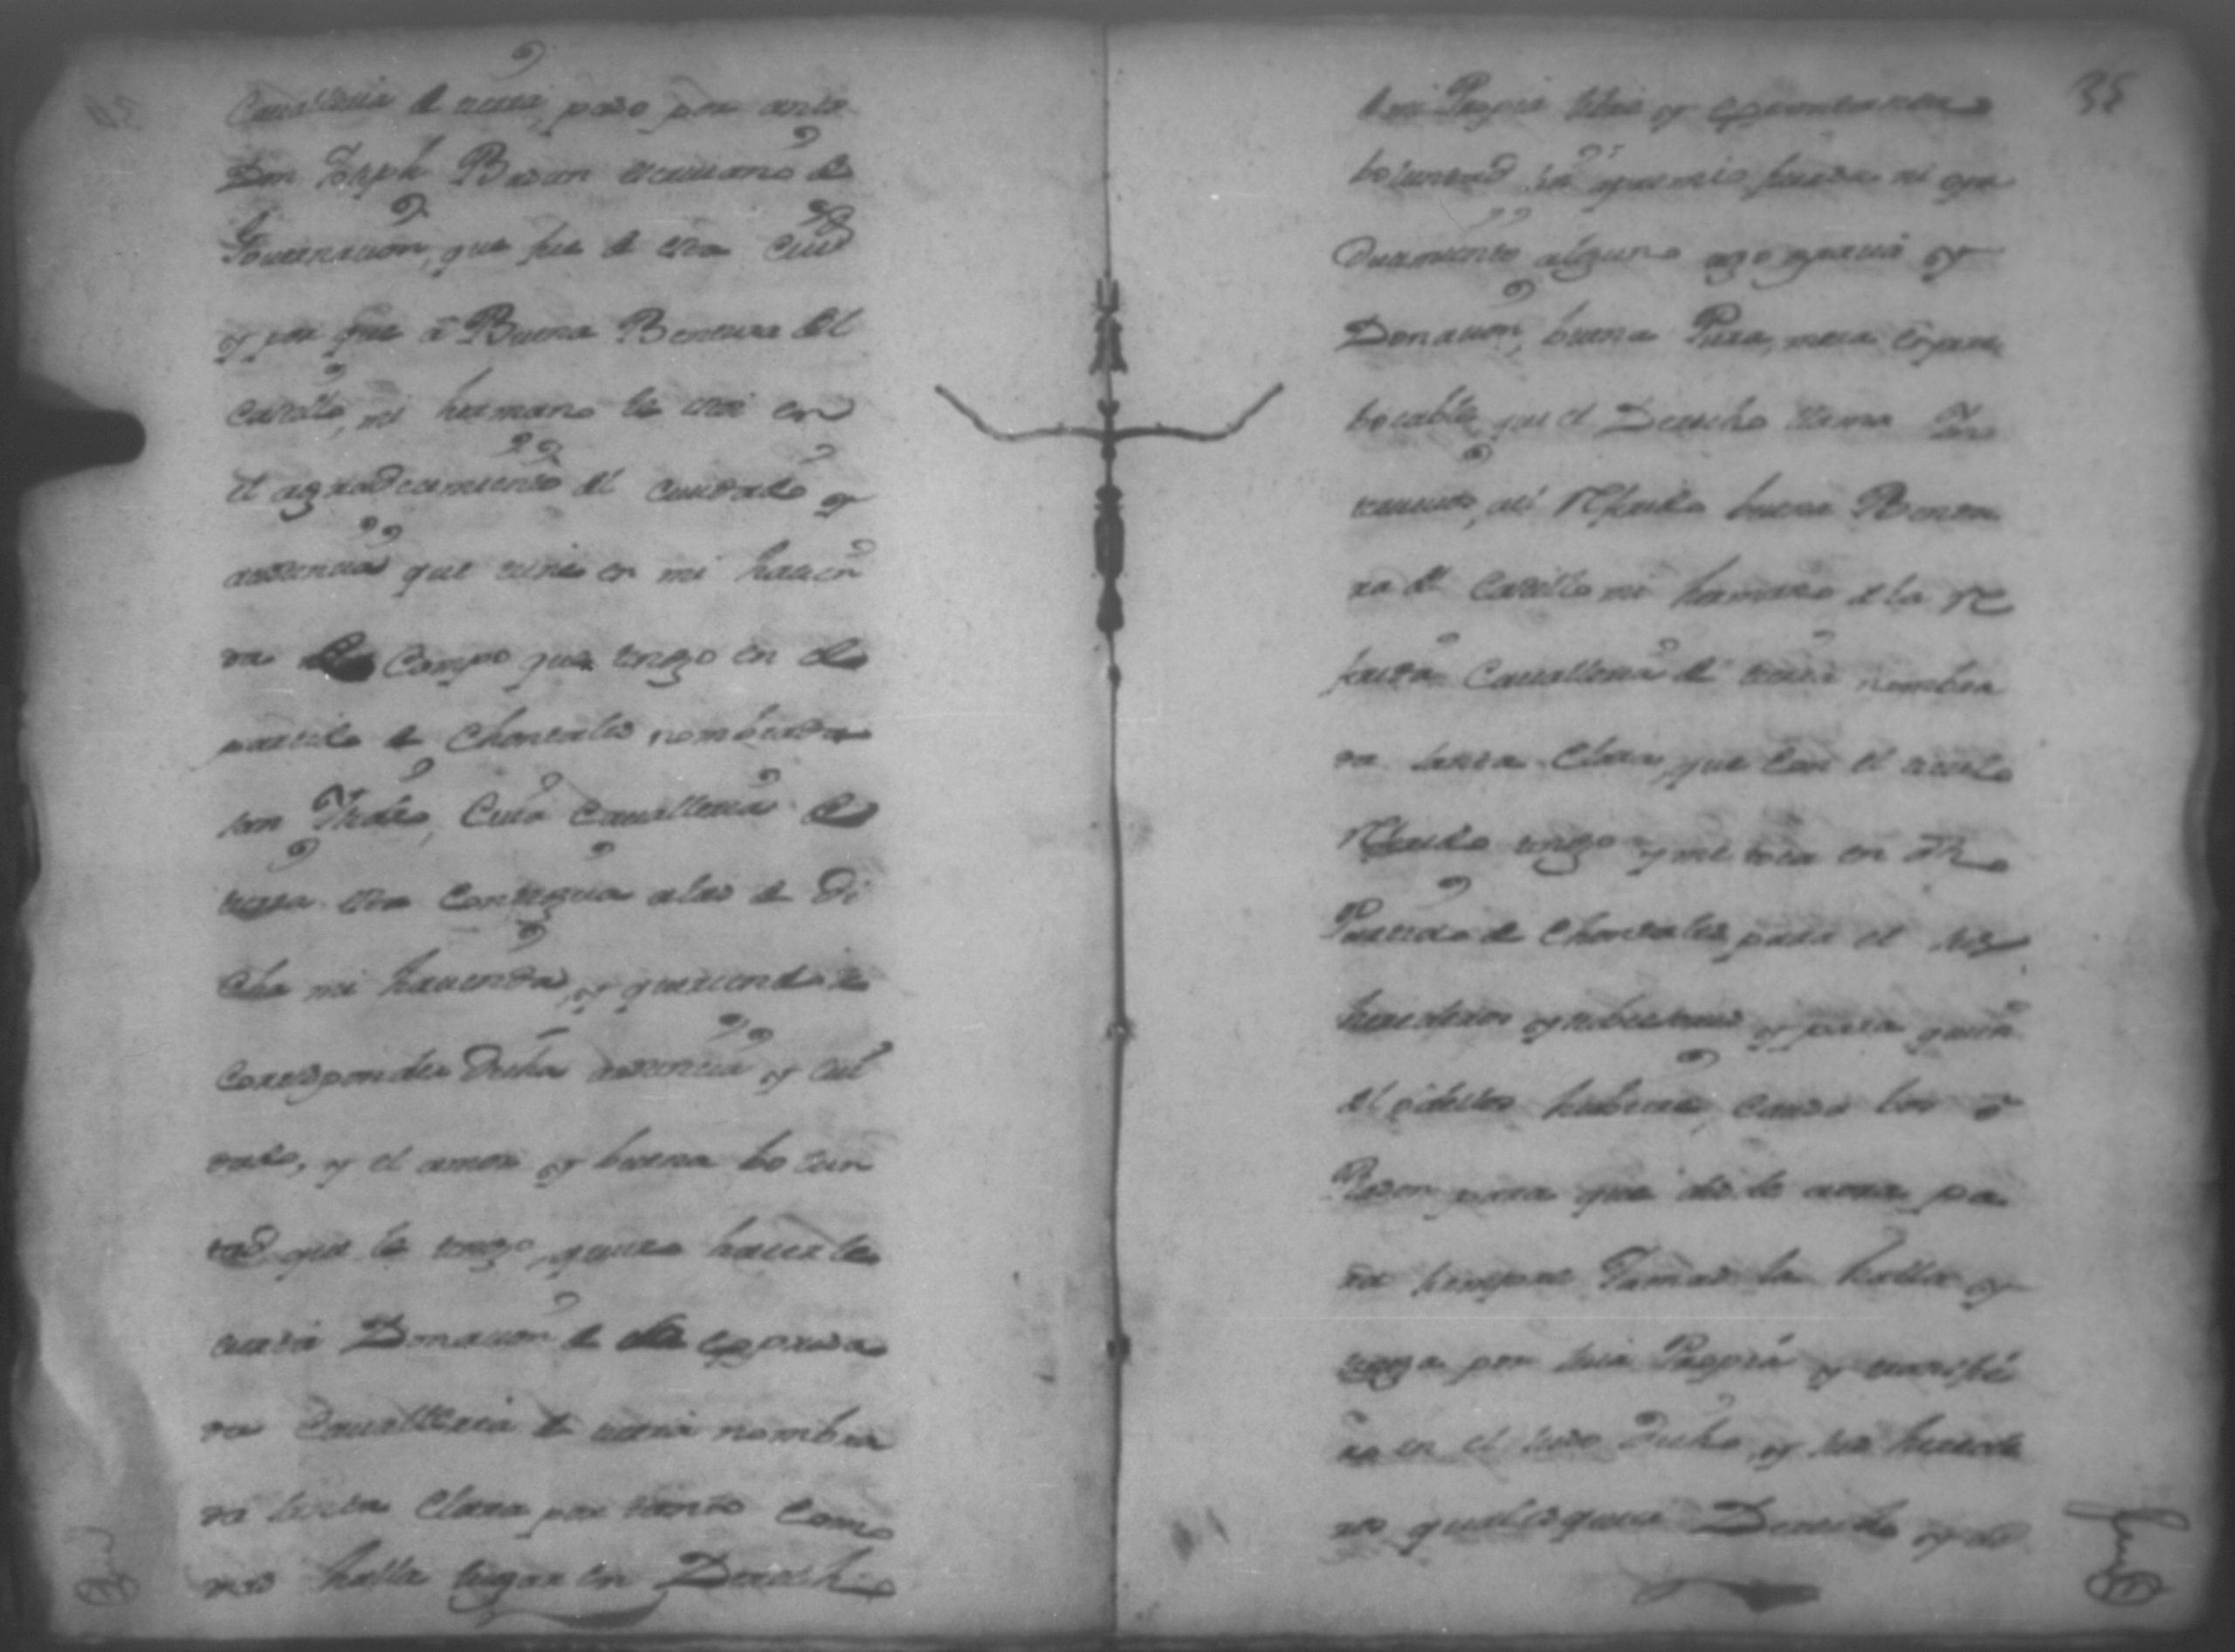 Cavalleria de tierra, paso por ante
Don Joseph Basan escrivano de
Governacion, que fue de esta Ciud
y por que â Buena Bentura del
Castillo, mi hermano le estoi en
el agradecimiento del cuidado y
asistencia que tiene en mi hacien
da de Campo que tengo en el
partido de Chontales nombrada
san Pedro, Cuia Cavalleria de
tierra esta Contigua a las de di
cha mi hacienda, y queriendole
Corresponder dicha asistencia y cui
dado, y el amor y buena bolun
tad que le tengo, quiero hacerle
Donacion de la expresa
da Cavalleria de tierra nombra
da santa Clara por tanto Como
mas halla lugar en Derecho
35
de mi Propia libre y espontanea
boluntad sin apremio fuersa ni
alguno ago gracia y
Donacion, buena Pura, mera
bocable que el Derecho llama In
tervivos, al Referido buena Bentu
ra del Castillo mi hermano de la Re
ferida Cavalleria de tierra nombra
da santa Clara, que Con el titulo
Referido tengo y me toca en dho
Partido de Chontales para el sus
herederos y subcesores y para quien
del o de ellos hubiere, Causa bos ô
Rason para que de lo aora pa
ra siempre Jamas la halla y
tenga por suia Propia y transfie
ro en el suso dicho, y sus herede
ros qualesquiera Derecho